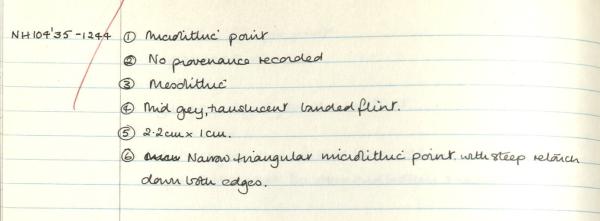 NH104'35-1244 ① Microlithic point
② No provenance recorded
③ Mesolithic
④ Mid grey, translucent banded flint.
⑤ 2.2cm x 1cm.
⑥ Narrow triangular microlithic point with steep retouch
down both edges.